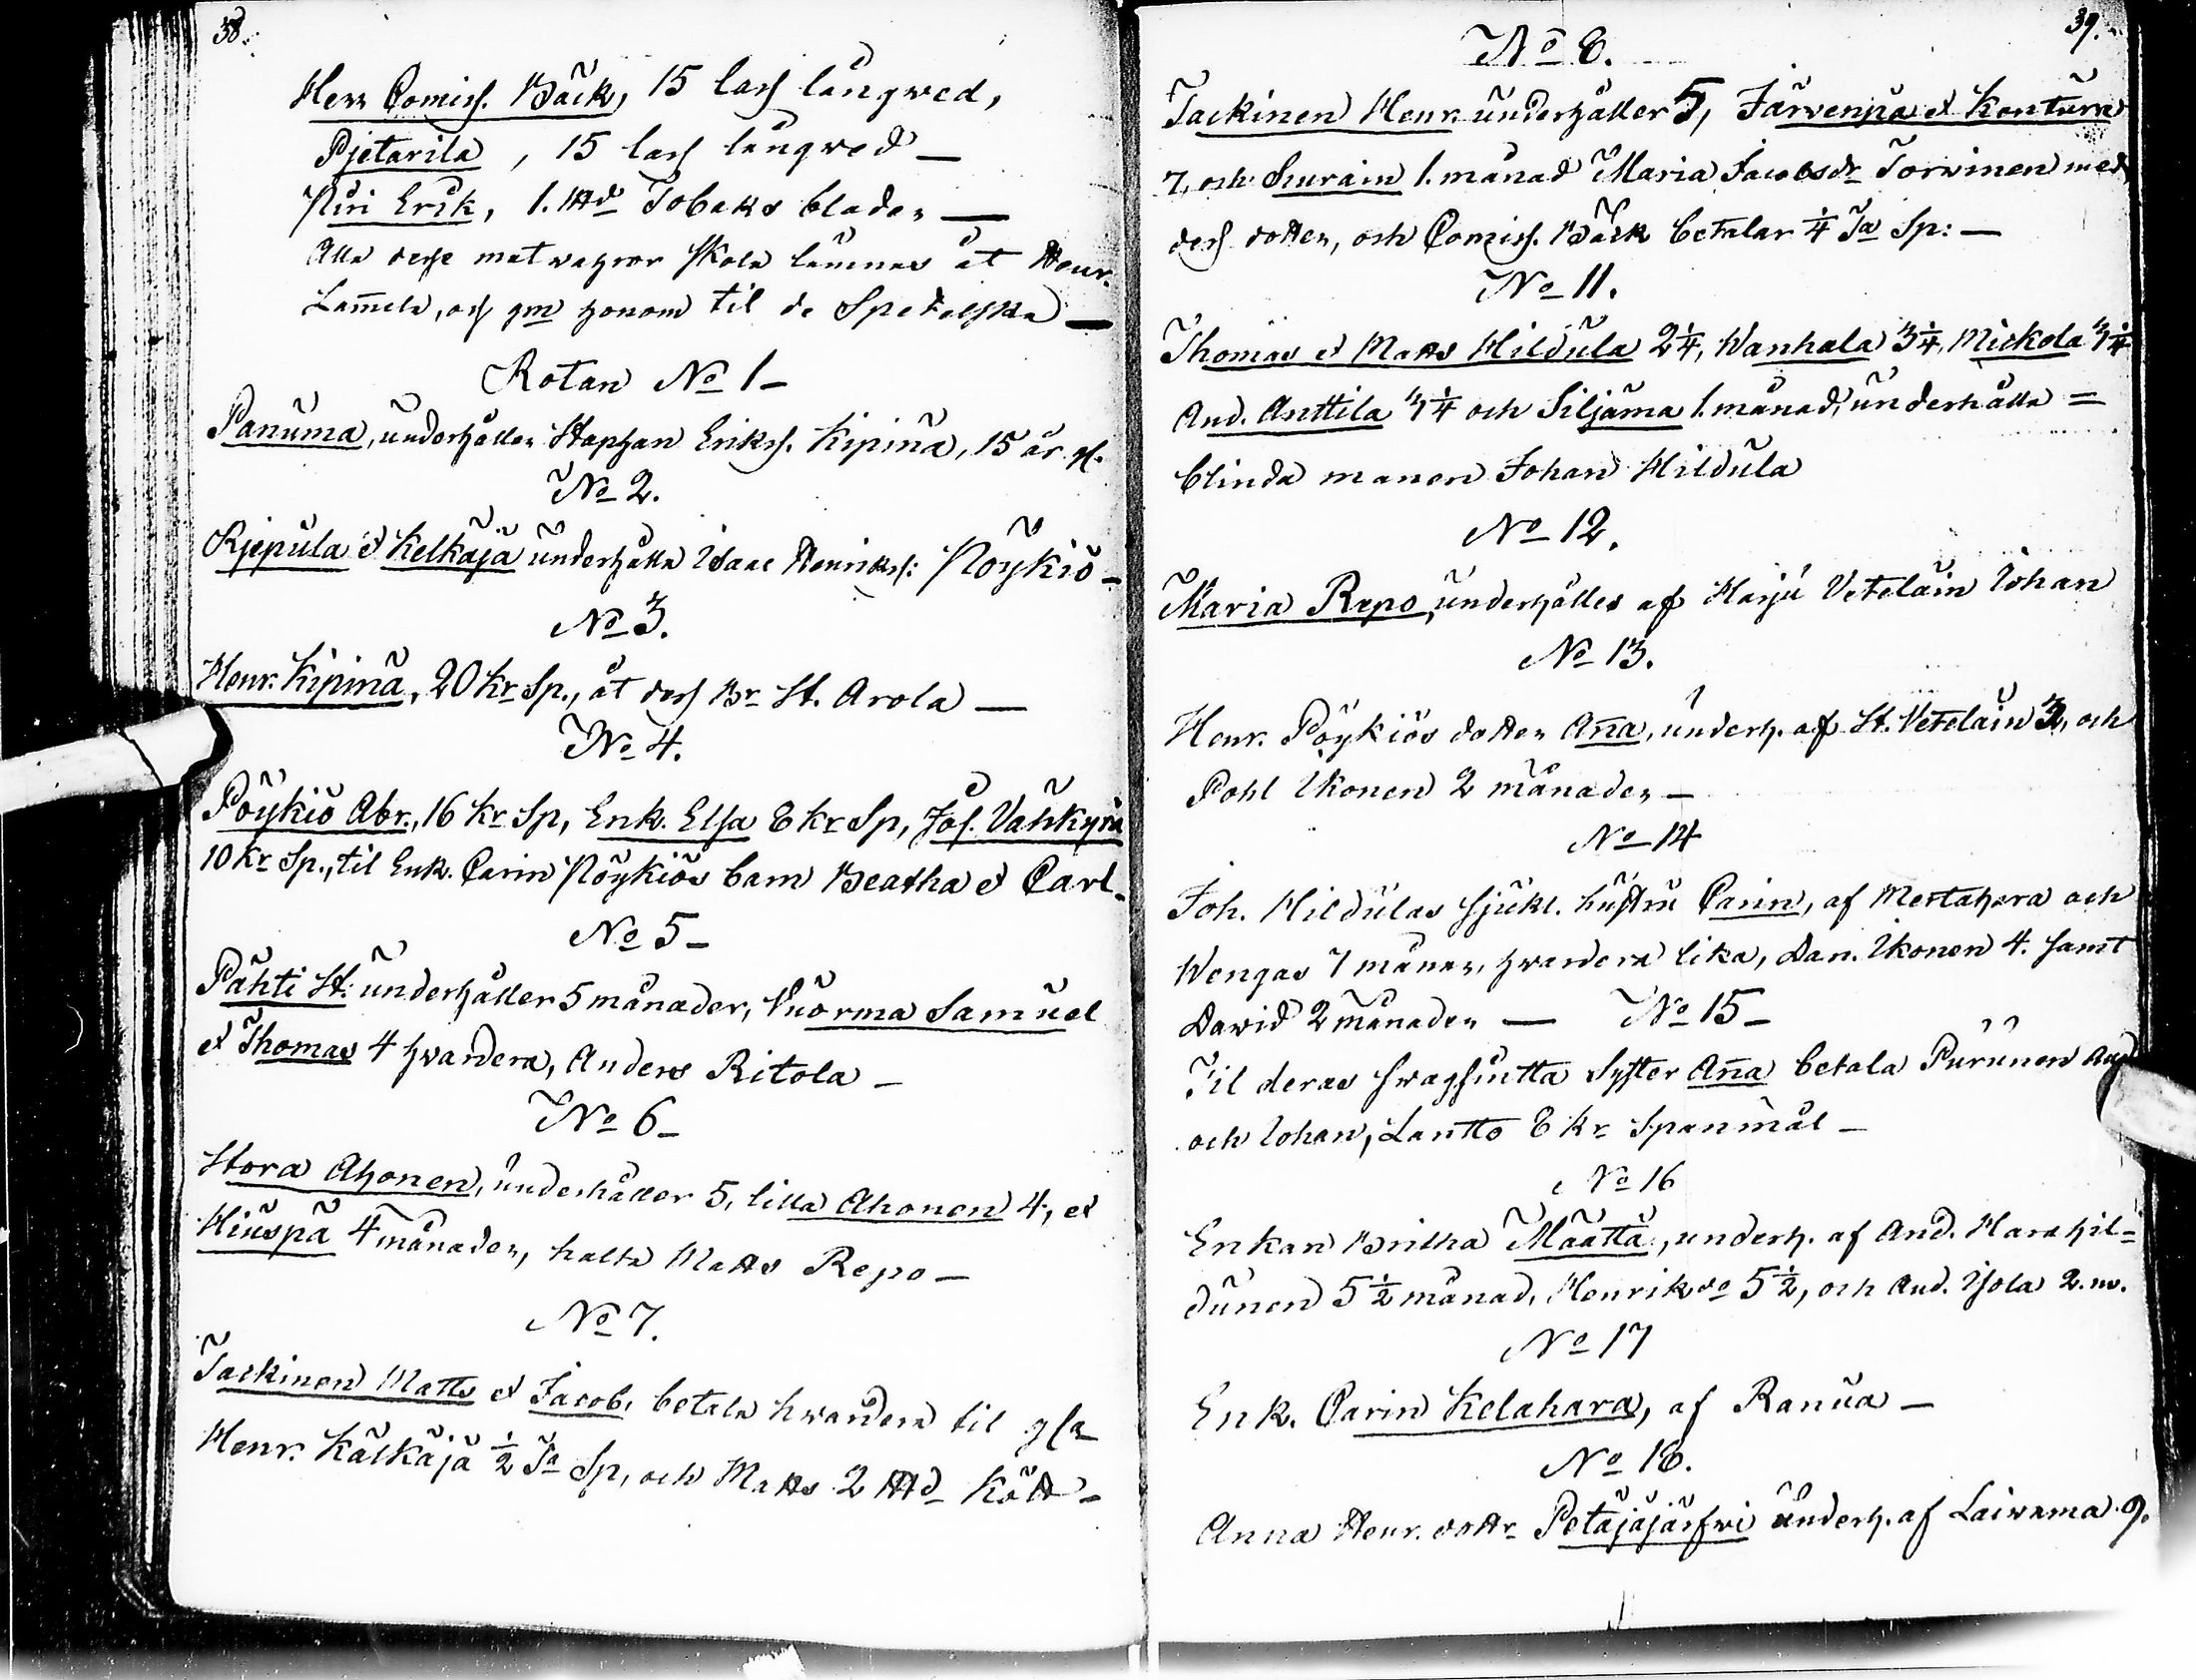 38.
Herr Comiss. Bäck, 15 lass långwed,
Pjetarila, 15 lass långwed —
Piri Erik, 1. ℔d Tobaks blader —
Alla desse matwahror skola lämnas åt Henr.
Lam̄ela, och gm honom til de Spetelska —
Rotan No 1 –
Panuma, underhåller Staphan Erikss. Kipinä, 15 år gl.
No 2.
Rjepula et Kelkäjä underhålla Isaac Henrikss: Pöykiö –
No 3.
Henr. Kipinä, 20 kr Sp., åt dess Br St. Arola —
No 4.
Pöykiö Abr., 16 kr Sp, Enk. Elsa 8 kr Sp, Jos. Vänkyrä
10 kr Sp., til Enk. Carin Pöykiös barn Beatha et Carl –
No 5 –
Pähti St. underhåller 5 månader, Vuorma Samuel
et Thomas 4 hvardera, Anders Ritola –
No 6 –
Stora Ahonen, underhåller 5, lilla Ahonen 4, et
Hiuspä 4 månader, halta Matts Repo –
No 7.
Tackinen Matts et Jacob, betala hwardera til gla
Henr. Kälkäjä ½ Ta Sp, och Matts 2 ℔d Kött –
39.
No 8.
Tackinen Henr. underhåller 5, Järvenpä et Kontura
7, och Suvain 1. månad Maria Jacobsdr Torvinen med
dess dotter, och Comiss. Bäck betalar ¼ Ta Sp: —
No 11.
Thomas et Matts Hildula 2¼, Wanhala 3¼, Mickola 3¼
And. Anttila 3¼ och Siljama 1. månad, underhålla =
blinda manen Johan Hildula
No 12.
Maria Repo, underhålles af Harju Vetelain Johan
No 13.
Henr. Pöykiös dotter An̄a, underh. af St. Vetelain 3, och
Pohl Ikonen 2 månader –
No 14
Joh. Hildulas sjukl. hustru Carin, af Mertahara och
Wengas 7 måna, hwardera lika, Dan. Ikonen 4. samt
David 2 månader — No 15 –
Til deras swagsinta Syster An̄a betala Purunen And
och Johan, Lantto 8 kr Spanmål –
No 16
Enkan Britha Määttä, underh. af And. Harahil=
dunen 5½ månad, Henrik do 5½, och And. Isola 2. m.
No 17
Enk. Carin Kelahara, af Ranua –
No 18.
Anna Henr. dottr Petäjäjärfwi underh. af Laivama 9.